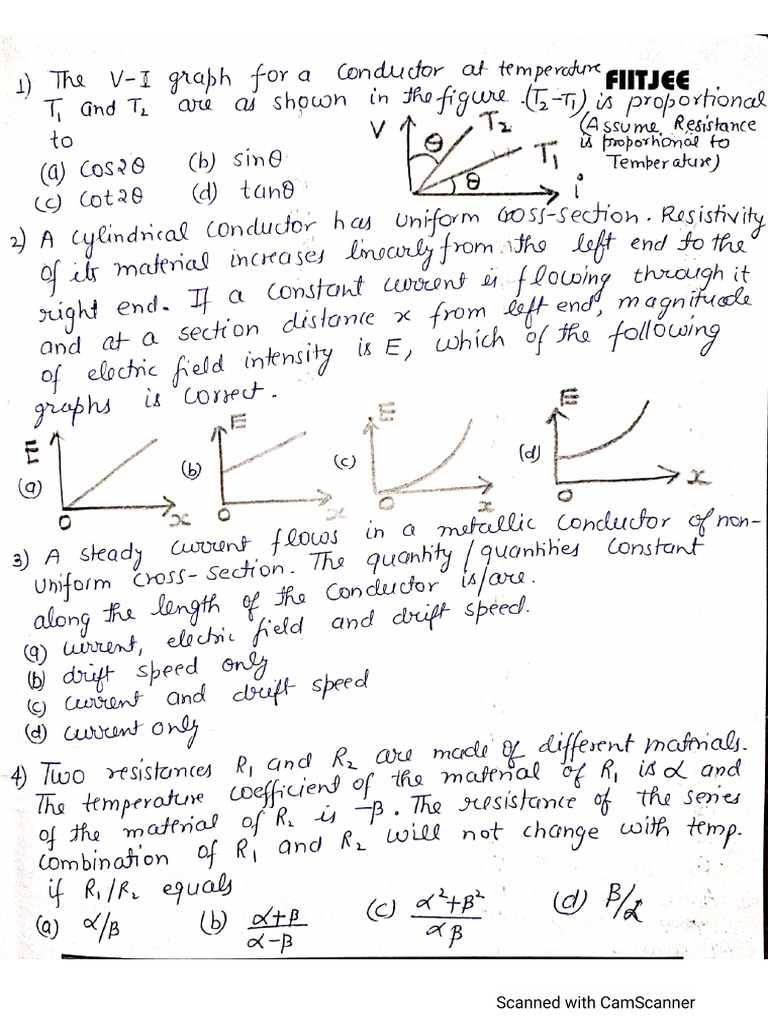 1) The V-I graph for a conductor at temperature FIITJEE
T₁ and T₂ are as shown in the figure. (T₂-T₁) is proportional
to
(Assume, Resistance
is proportional to
Temperature)
V
θ
T₂
T₁
θ
i
(a) Cos2θ (b) sinθ
(c) Cot2θ (d) tanθ
2) A cylindrical conductor has uniform cross-section. Resistivity
of its material increases linearly from the left end to the
right end. If a constant current is flowing through it
and at a section distance x from left end, magnitude
of electric field intensity is E, which of the following
graphs is correct.
(a) E O x (b) E O x (c) E O x (d) E O x
3) A steady current flows in a metallic conductor of non-
uniform cross-section. The quantity/quantities constant
along the length of the conductor is/are.
(a) current, electric field and drift speed.
(b) drift speed only
(c) current and drift speed
(d) current only
4) Two resistances R₁ and R₂ are made of different materials.
The temperature coefficient of the material of R₁ is α and
of the material of R₂ is -β. The resistance of the series
combination of R₁ and R₂ will not change with temp.
if R₁/R₂ equals
(a) α/β (b) α+β/α-β (c) α²+β²/αβ (d) β/α
Scanned with CamScanner